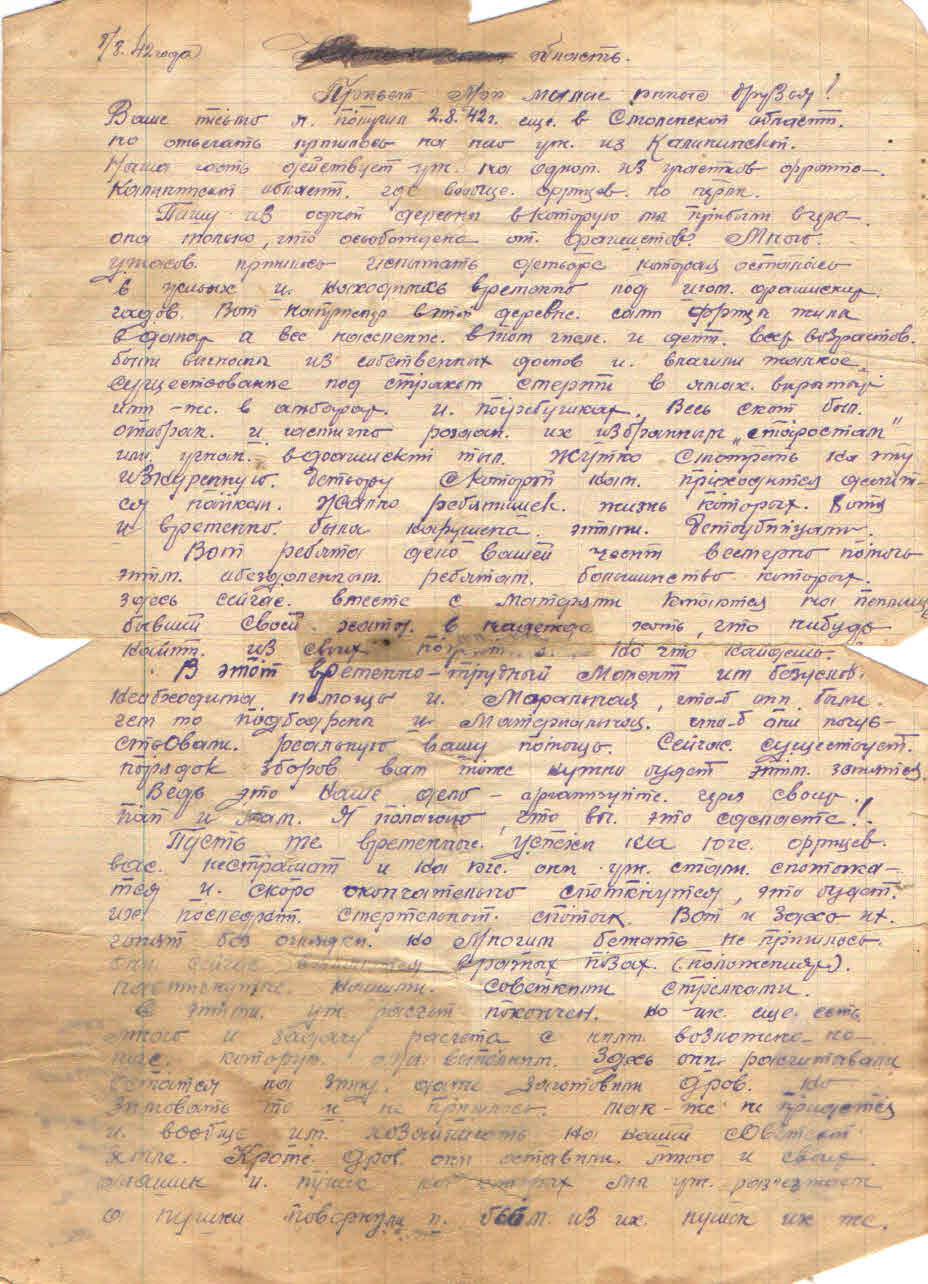 8/8. 42 года область.
Привет Мои милые юные друзья!
Ваше письмо я. получил 2.8.42г. еще. в Смоленской области.
но отвечать пришлось на него уж. из Калининской.
Наша часть действует уж. на одном из участков фронта
Калининской област. где вообще. фрицев.
Пишу из одной деревни в которую мы прибыли вчера
она только, что освобождена от. фашистов. Много.
ужасов. пришлось испытать детворе которая осталась
в живых и. находилась временно под игом. фашистких.
гадов. Вот например в этой деревне. сами фрицы жили
в домах а все население. в том числе. и дети. всех возрастов.
были выгнаны из собственных домов и. влачили жалкое.
существование под страхом смерти в ямах. вырытых
или -же. в амбарах. и. погребушках. Весь скот был.
отобран. и частично роздан. их избранным „старостам"
или угнан. в фашиский тыл. Жутко смотреть на эту
изнуренную. детвору с которой нам. приходится делит-
ся пайком. Жалко ребятишек. жизнь которых. хотя
и временно. была нарушена. этими. детоубийцами.
Вот ребята дело вашей чести всемерно помочь
этим. обездоленным. ребятам. большинство которых.
здесь сейчас. вместе с матерями копаются на пепелище
бывшей своей хаты. в надежде хоть, что нибудь
найти. из своих но что найдешь.
В этот временно-трудный момент им безуслов.
необходима помощь и. Маральная, что-б они были.
чем то подбодрены и Матернальная. что-б они почув-
ствовали. реальную вашу помощь. Сейчас. существует.
порядок зборов вам тоже нужно будет этим. занятся.
Ведь это ваше дело - организуйте. через своих.
пап и Мам. Я полагаю, что вы. это сделаете!
Пусть те временные. успехи на юге. фрицев.
вас. нестрашат и на юге. они уж. стали. спотыка-
тся и. скоро окончательно споткнутся, это будет.
их последний. смертельный. спотык Вот и здесь их.
гонят без оглядки. но многим бежать не пришлось.
они сейчас валяются в разных позах. (положениях).
настигнутые. нашими. советкими стрелками.
С этими. уж расчет покончен. но их. еще есть
много и задачу расчета с ними возложена на
нас. которую. мы выполним. Здесь они. расчитывали
остатся на зиму. даже заготовили дров. но
зимовать то и не пришлось. так-же не придется
и. вообще им. хозяйничать на нашей советской
земле. Кроме дров они оставили. много и своих.
машин и. пушек на которых мы уж. разъезжаем
а пушки повернули и. бьём. из их. пушек их же.